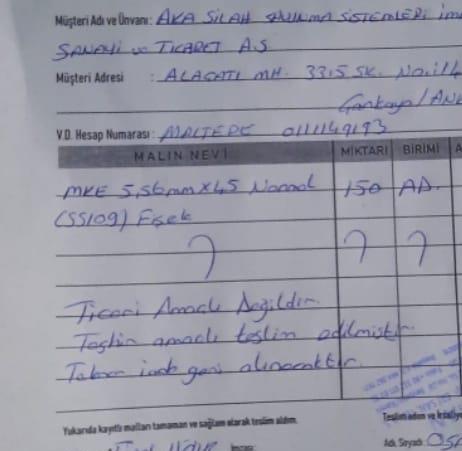 Müşteri Adı ve Ünvanı: AKA SİLAH SAVUNMA SİSTEMLERİ İm
SANAYİ ve TİCARET A.Ş
Müşteri Adresi : ALACAATLI MH. 3315 SK. No:1/4
Çankaya/AN
V.D. Hesap Numarası: MALTEPE 0111149193
MALIN NEVİ MİKTARI BİRİMİ
MKE 5,56mm x 45 Normal 150 AD.
(SS109) Fişek
Ticari Amaçlı Değildir.
Teşhir amaçlı teslim edilmiştir.
Tekrar iade geri alınacaktır.
Yukarıda kayıtlı malları tamamen ve sağlam olarak teslim aldım.
Teslim eden ve
İmzası:
Adı, Soyadı